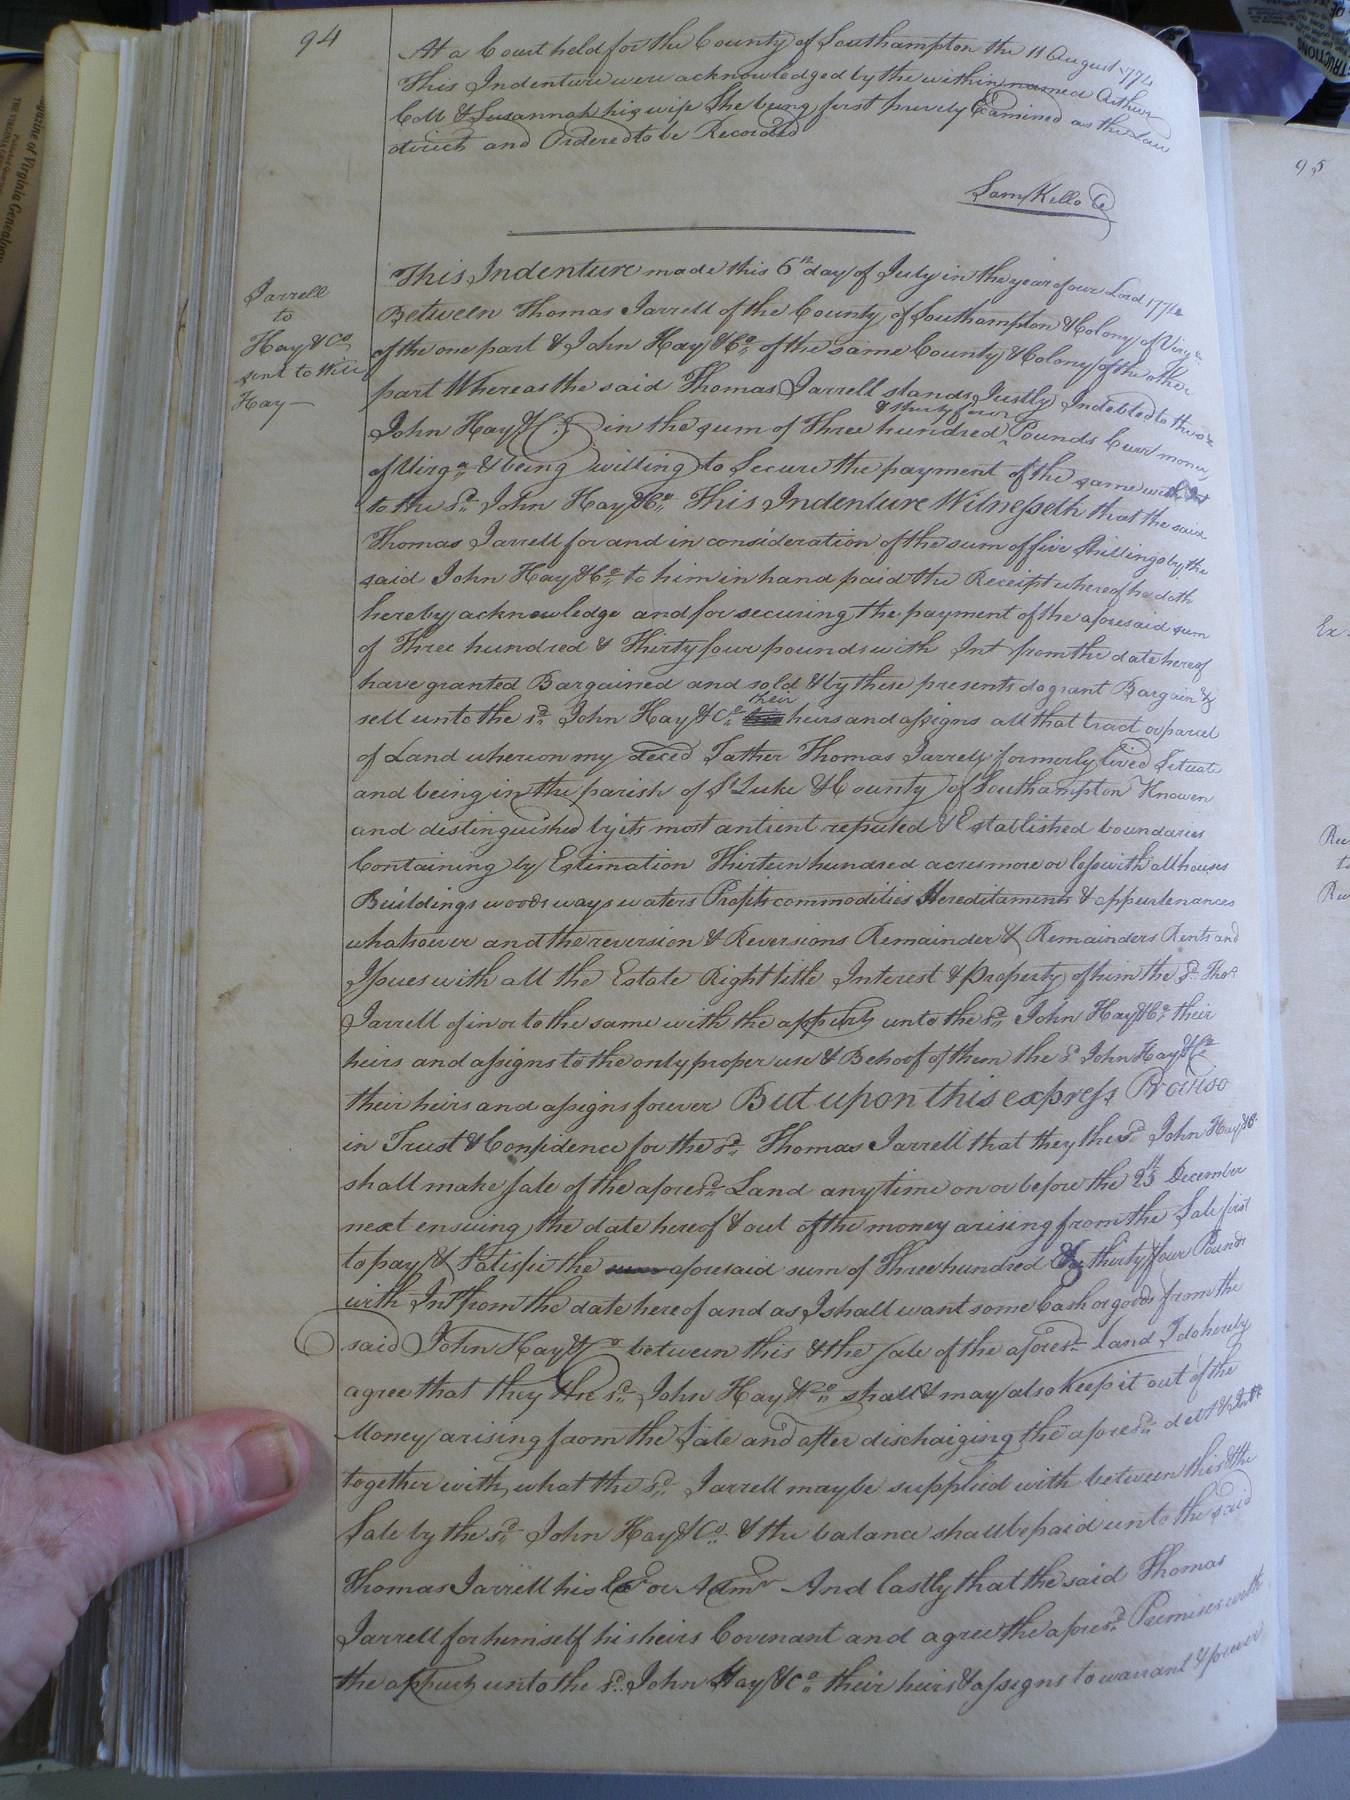 94
At a Court held for the County of Southampton the 11 August 1774
This Indenture were acknowledged by the within named Arthur
& Susannah his wife She being first privily Examined as the Law
directs and Ordered to be Recorded
Sam Kello
95
Jarrell
to
Hay & Co
sent to Will
Hay
This Indenture made this 6th day of July in the year of our Lord 1774
Between Thomas Jarrell of the County of Southampton & Colony of Virga
of the one part & John Hay & Co of the same County & Colony of the other
part Whereas the said Thomas Jarrell stands Justly Indebted to the
& thirty four
John Hay & Co in the sum of Three hundred ^ Pounds Curr money
of Virga & being willing to Secure the payment of the same with Int
to the sd John Hay & Co This Indenture Witnesseth that the said
Thomas Jarrell for and in consideration of the sum of five Shillings by the
said John Hay & Co to him in hand paid the Receipt whereof he doth
hereby acknowledge and for securing the payment of the aforesaid sum
of Three hundred & Thirty four pounds with Int from the date hereof
have granted Bargained and sold & by these presents do grant Bargain &
their
sell unto the sd John Hay & Co heirs and assigns all that tract or parcel
of Land whereon my decd Father Thomas Jarrell formerly lived Situate
and being in the parish of St Luke & County of Southampton Knowen
and distinguished by its most antient reputed & Established boundaries
Containing by Estimation Thirteen hundred acres more or less with all houses
Buildings woods ways waters Profits commodities Hereditaments & appurtenances
whatsoever and the reversion & Reversions Remainder & Remainders Rents and
Issues with all the Estate Right title Interest & Property of him the sd Thos
Jarrell of in or to the same with the appurts unto the sd John Hay & Co their
heirs and assigns to the only proper use & Behoof of them the sd John Hay & Co
their heirs and assigns forever But upon this express Proviso
in Trust & Confidence for the sd Thomas Jarrell that they the sd John Hay & Co
shall make sale of the aforesd Land any time on or before the 25th December
next ensuing the date hereof & out of the money arising from the Sale first
to pay & Satisfie the aforesaid sum of Three hundred & thirty four Pounds
with Int from the date hereof and as I shall want some Cash or goods from the
said John Hay & Co between this & the sale of the aforesd land I do hereby
agree that they the sd John Hay & Co shall & may also Keep it out of the
Money arising from the Sale and after dischaiging the aforesd debt & Intt
together with what the sd Jarrell may be supplied with between this & the
Sale by the sd John Hay & Co & the balance shall be paid unto the said
Thomas Jarrell his Exr or Admr And lastly that the said Thomas
Jarrell for himself his heirs Covenant and agree the aforesd Premises with
the appurts unto the sd John Hay & Co their heirs & assigns to warrant & forever